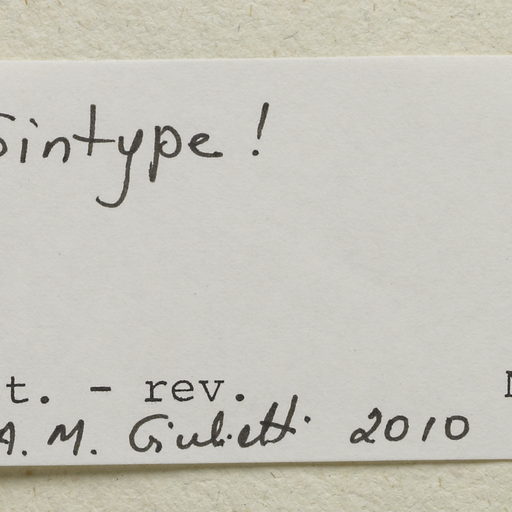 Sintype!
t. - rev.
A. M. Giulietti 2010